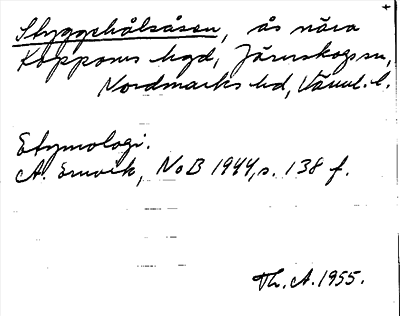 Skyggehålsåsen, ås nära
Koppoms hgd, Järnskogs sn,
Nordmarks hd, Värml. l.
Etymologi.
A. Ernvik, NoB 1944, s. 138 f.
Th. A. 1955.